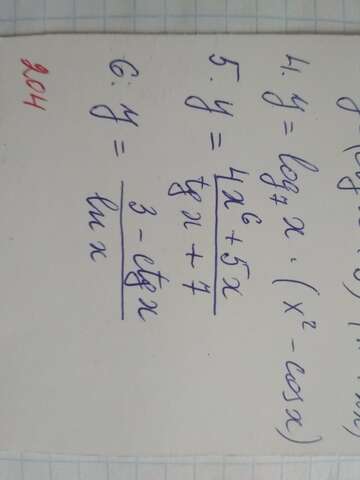 4. y = log₇ x · (x² - cos x)
5. y = (4x⁶ + 5x) / (tg x + 7)
6. y = (3 - ctg x) / (ln x)
204